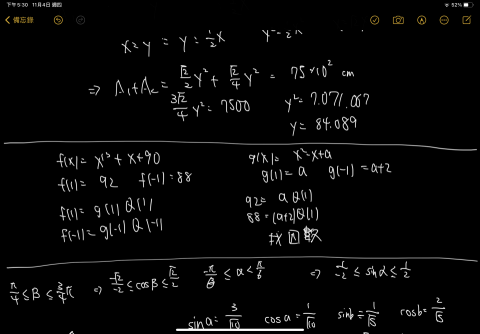 下午5:30 11月4日 週四
52%
備忘錄
x=y = y = ½x
⇒ A₁+A₂ = √2/2 y² + √2/4 y² = 75×10² cm
3√2/4 y² = 7500 y² = 7.071.067
y = 84.089
f(x) = x¹³ + x + 90 g(x) = x²-x+a
f(1) = 92 f(-1) = 88 g(1) = a g(-1) = a+2
f(1) = g(1) Q(1) 92 = a Q(1)
f(-1) = g(-1) Q(-1) 88 = (a+2) Q(1)
找因數
π/4 ≤ β ≤ 3/4 π ⇒ -√2/2 ≤ cosβ ≤ √2/2 -π/6 ≤ α < π/6 ⇒ -1/2 ≤ sinα ≤ 1/2
sin a = 3/√10 cos a = 1/√10 sin b = 1/√5 cos b = 2/√5